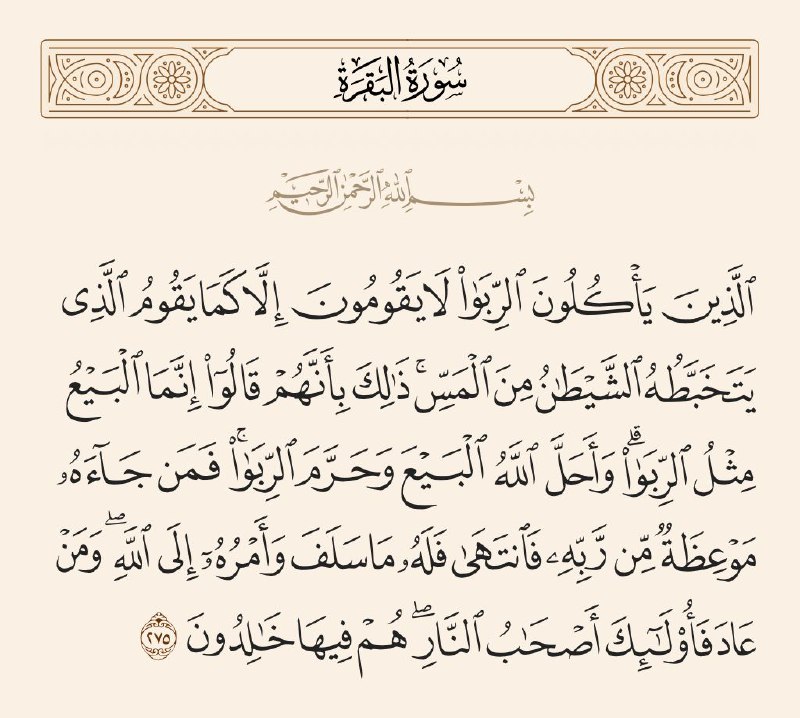 سُورَةُ البَقَرَةِ
بِسْمِ ٱللَّهِ ٱلرَّحْمَٰنِ ٱلرَّحِيمِ
ٱلَّذِينَ يَأْكُلُونَ ٱلرِّبَوٰا۟ لَا يَقُومُونَ إِلَّا كَمَا يَقُومُ ٱلَّذِى
يَتَخَبَّطُهُ ٱلشَّيْطَـٰنُ مِنَ ٱلْمَسِّ ۚ ذَٰلِكَ بِأَنَّهُمْ قَالُوٓا۟ إِنَّمَا ٱلْبَيْعُ
مِثْلُ ٱلرِّبَوٰا۟ ۗ وَأَحَلَّ ٱللَّهُ ٱلْبَيْعَ وَحَرَّمَ ٱلرِّبَوٰا۟ ۚ فَمَن جَآءَهُۥ
مَوْعِظَةٌ مِّن رَّبِّهِۦ فَٱنتَهَىٰ فَلَهُۥ مَا سَلَفَ وَأَمْرُهُۥٓ إِلَى ٱللَّهِ ۖ وَمَنْ
عَادَ فَأُو۟لَـٰٓئِكَ أَصْحَـٰبُ ٱلنَّارِ ۖ هُمْ فِيهَا خَـٰلِدُونَ ٢٧٥